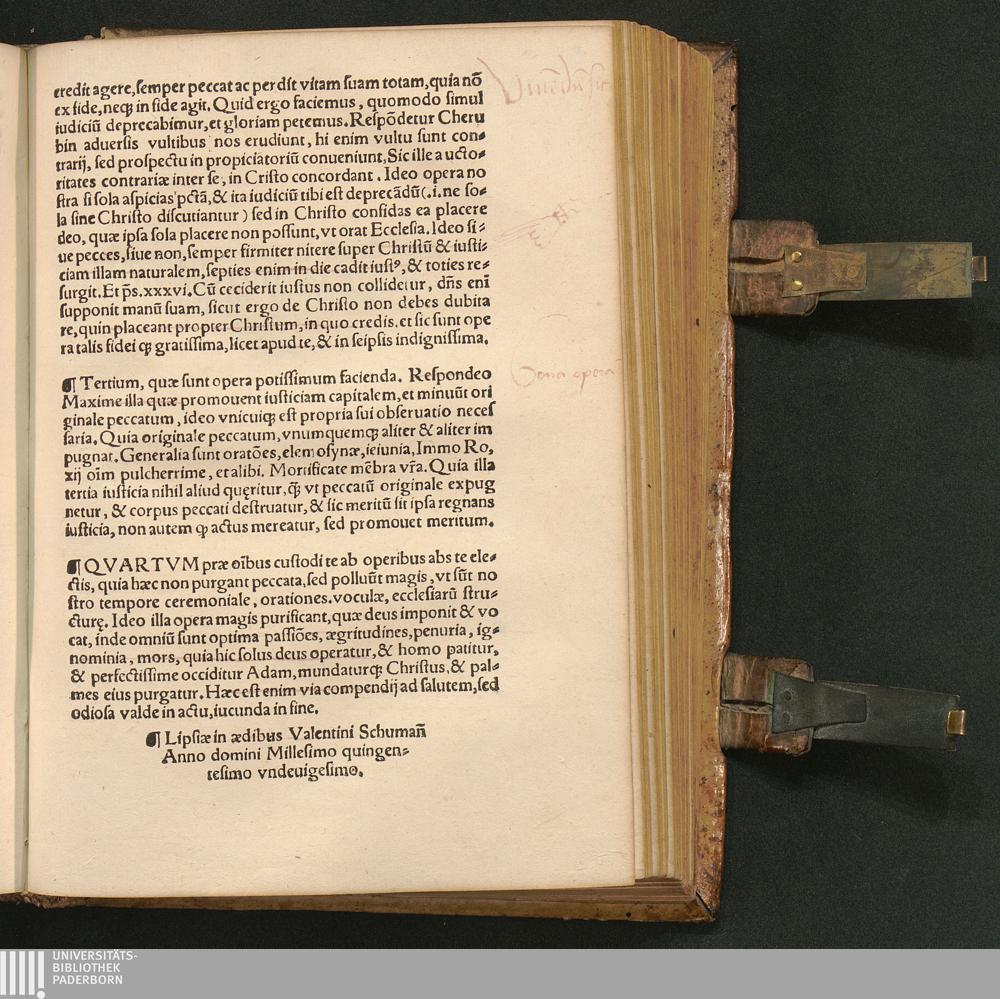 credit agere, semper peccat ac perdit vitam suam totam, quia nõ
ex fide, neqꝫ in fide agit. Quid ergo faciemus, quomodo simul
iudiciũ deprecabimur, et gloriam petemus. Respõdetur Cheru
bin aduersis vultibus nos erudiunt, hi enim vultu sunt con⸗
trarij, sed prospectu in propiciatoriũ conueniunt, Sic ille aucto⸗
ritates contrariæ inter se, in Cristo concordant. Ideo opera no
stra si sola aspicias pctã, & ita iudiciũ tibi est deprecãdũ (.i. ne so⸗
la sine Christo discutiantur) sed in Christo confidas ea placere
deo, quæ ipsa sola placere non possunt, vt orat Ecclesia. Ideo si⸗
ue pecces, siue non, semper firmiter nitere super Christũ & iusti⸗
ciam illam naturalem, septies enim in die cadit iustꝰ, & toties re⸗
surgit. Et p̃s. xxxvi. Cũ ceciderit iustus non collidetur, dñs enĩ
supponit manũ suam, sicut ergo de Christo non debes dubita
re, quin placeant propter Christum, in quo credis. et sic sunt ope
ra talis fidei qꝫ gratissima, licet apud te, & in seipsis indignissima.
¶ Tertium, quæ sunt opera potissimum facienda. Respondeo
Maxime illa quæ promouent iusticiam capitalem, et minuũt ori
ginale peccatum, ideo vnicuiqꝫ est propria sui obseruatio neces
saria. Quia originale peccatum, vnumquemqꝫ aliter & aliter im
pugnat. Generalia sunt oratões, elemosynæ, ieiunia, Immo Ro.
xij oĩm pulcherrime, et alibi. Mortificate mẽbra vr̃a. Quia illa
tertia iusticia nihil aliud quęritur, q̃ꝫ vt peccatũ originale expug
netur, & corpus peccati destruatur, & sic meritũ sit ipsa regnans
iusticia, non autem ꝙ actus mereatur, sed promouet meritum.
¶ QVARTVM præ oĩbus custodi te ab operibus abs te ele⸗
ctis, quia hæc non purgant peccata, sed polluũt magis, vt sũt no
stro tempore ceremoniale, orationes. voculæ, ecclesiarũ stru⸗
cturę. Ideo illa opera magis purificant, quæ deus imponit & vo
cat, inde omniũ sunt optima passiões, ægritudines, penuria, ig⸗
nominia, mors, quia hic solus deus operatur, & homo patitur,
& perfectissime occiditur Adam, mundaturqꝫ Christus, & pal⸗
mes eius purgatur. Hæc est enim via compendij ad salutem, sed
odiosa valde in actu, iucunda in fine.
¶ Lipsiæ in ædibus Valentini Schumañ
Anno domini Millesimo quingen⸗
tesimo vndeuigesimo.
Bona opera
UNIVERSITÄTS-
BIBLIOTHEK
PADERBORN